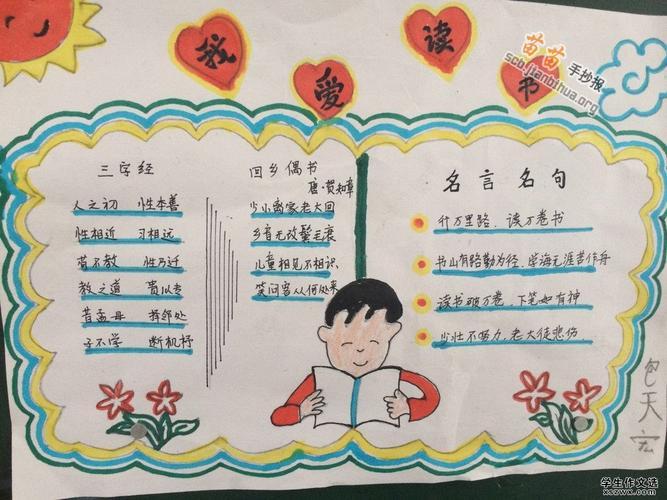 我爱读书
苗苗手抄报
scb.jianbihua.org
三字经
人之初 性本善
性相近 习相远
苟不教 性乃迁
教之道 贵以专
昔孟母 择邻处
子不学 断机杼
回乡偶书
唐·贺知章
少小离家老大回
乡音无改鬓毛衰
儿童相见不相识
笑问客从何处来
名言名句
行万里路、读万卷书
书山有路勤为径、学海无涯苦作舟
读书破万卷、下笔如有神
少壮不努力、老大徒悲伤
包天宏
学生作文选
xszwx.com